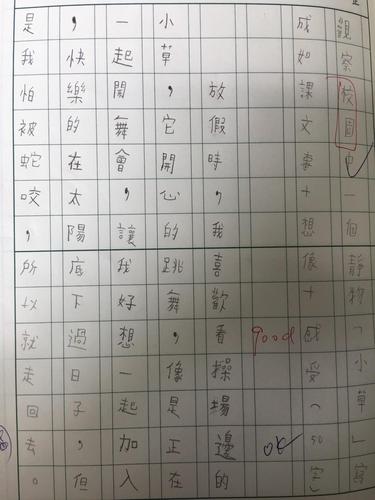 觀察校園中一個靜物「小草」寫
成如課文事＋想像＋感受（50字）
good ok
放假時，我喜歡看操場邊的
小草，它開心的跳舞，像是正在
一起開舞會，讓我好想一起加入
，快樂的在太陽底下過日子，但
是我怕被蛇咬，所以就走回去。